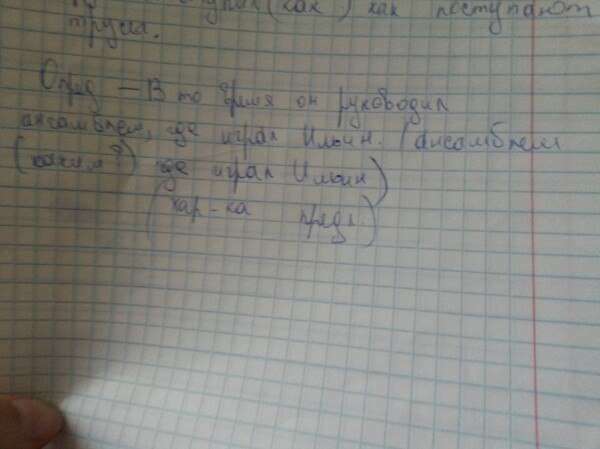 (как) как поступают
трусы.
Опред — В то время он руководил
ансамблем, где играл Ильин. (ансамблем
(каким?) где играл Ильин)
(хар-ка предм.)